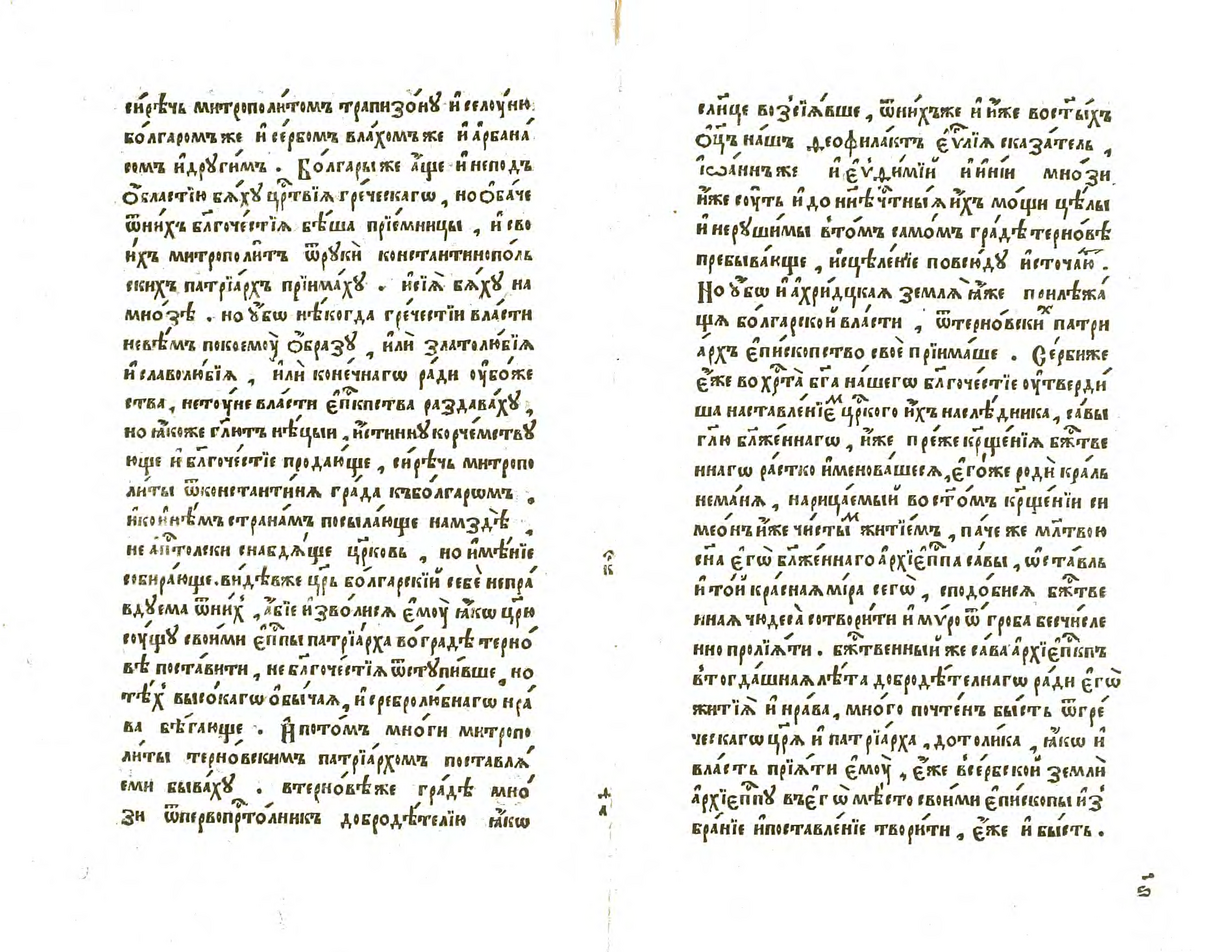 си́рѣчь митрополи́томъ трапизо́нꙋ и҆ селоу́ню
бо́лгаромъже и҆ се́рбомъ вла́хомъже и҆ а҆рбана́
сомъ и҆други́мъ . Бо́лгарыже а҆́ще и҆ неподъ
ѻ҆́бластїю бѧ́хꙋ црⷭ҇твїѧ гре́ческагѡ , но ѻ҆ба́че
ѿни́хъ бл҃гоче́стїѧ бѣ́ша прїе́мницы , и҆ сво
и҆́хъ митрополи́тъ ѿрꙋки̑ константинопо́ль
скихъ патрїа́рхъ прїима́хꙋ . и҆сїѧ̀ бѧ́хꙋ на
мно́зѣ . но ᲂу҆́бѡ нѣ́когда гре́честїи вла́сти
невѣ́мъ покоемоу̀ ѻ҆́бразꙋ , и҆лѝ златолю́бїѧ
и҆ славолю́бїѧ , и҆лѝ коне́чнагѡ ра́ди оубо́же
ства , нето́чне вла́сти є҆пⷭ҇кпства раздава́хꙋ ,
но ꙗ҆́коже гл҃ютъ нѣ́цыи , и҆́стиннꙋ корче́мствꙋ
юще и҆ бл҃гоче́стїе продаю́ще , си́рѣчь митропо
ли́ты ѿконстанти́нѧ гра́да къбо́лгарѡмъ .
и҆ко и҆нѣ́мъ страна́мъ посыла́юще намздѣ̀ ,
не а҆пⷭ҇толски снабдѧ́ще цр҃ковь , но и҆мѣ́нїе
собира́юще . ви́дѣвже цр҃ь бо́лгарскїй себѐ непра́
вдꙋема ѿни́хъ , а҆́бїе и҆зво́лисѧ є҆моу̀ ꙗ҆́кѡ цр҃ю
соу́щꙋ свои́ми є҆пⷭ҇пы патрїа́рха во гра́дѣ терно́
вѣ поста́вити , не бл҃гоче́стїѧ ѿстꙋпи́вше , но
тѣ́хъ высо́кагѡ ѻ҆бы́чаѧ , и҆ сребролю́бнагѡ нра́
ва бѣ́гающе . И҆ пото́мъ мно́ги митропо
ли́ты терно́вскимъ патрїа́рхомъ поставлѧ́
еми быва́хꙋ . втерно́вѣже гра́дѣ мно́
зи ѿпервопрⷭ҇то́лникъ добродѣ́телїю ꙗ҆́кѡ
к҃
д҃
сл҃нце возсїѧ́вше , ѿни́хъже и҆ и҆́же восты́хъ
ѻ҆ц҃ъ на́шъ ѳеофила́ктъ є҆ѵⷢ҇лїѧ сказа́тель ,
і҆ѡа́ннъже и҆ є҆ѵѳи́мїй и҆ и҆ні́и мно́зи
и҆́же соу́ть и҆ до ннѣ̀ чⷭ҇тны́ѧ и҆́хъ мо́щи цѣ́лы
и҆ нерꙋши́мы вто́мъ само́мъ гра́дѣ терно́вѣ
пребыва́юще , и҆сцѣле́нїе повсю́дꙋ и҆сточаю́ .
Но ᲂу҆́бѡ и҆ а҆хри́дцкаѧ землѧ̀ ꙗ҆́же прилѣжа́
щѧ бо́лгарской вла́сти , ѿтерно́вскихъ патри
а́рхъ є҆пископство своѐ прїима́ше . Се́рбиже
є҆́же во хрⷭ҇та̀ бг҃а на́шегѡ бл҃гоче́стїе оутверди́
ша наставле́нїемъ црⷭ҇кого и҆́хъ наслѣ́дника , са́вы
гл҃ю бл҃же́ннагѡ , и҆́же пре́же крщ҃е́нїѧ бжⷭ҇тве
ннагѡ ра́стко и҆менова́шесѧ , є҆го́же родѝ кра́ль
нема́нѧ , нарица́емый востⷭ҇о́мъ крщ҃е́нїи си
мео́нъ и҆́же чи́стымъ житїе́мъ , па́че же мл҃твою
сн҃а є҆гѡ̀ бл҃же́ннаго а҆рхїе҆пⷭ҇па са́вы , ѡ҆ста́вль
и҆ то́й кра́снаѧ ми́ра сегѡ̀ , сподо́бисѧ бжⷭ҇тве
ннаѧ чꙋдеса̀ сотвори́ти и҆ мѵ́ро ѿ гро́ба бесчи́сле
нно пролїѧ́ти . бжⷭ҇твенный же са́ва а҆рхїе҆пⷭ҇кпъ
втогда́шнаѧ лѣ́та добродѣ́телнагѡ ра́ди є҆гѡ̀
житїѧ̀ и҆ нра́ва , мно́го почте́нъ бы́сть ѿгре́
ческагѡ цр҃ѧ̀ и҆ патрїа́рха , дото́лика , ꙗ҆́кѡ и҆
вла́сть прїѧ́ти є҆моу̀ , є҆́же всербской землѝ
а҆рхїе҆пⷭ҇пꙋ въє҆гѡ̀ мѣ́сто свои́ми є҆пи́скопы и҆з
бра́нїе и҆поставле́нїе твори́ти , є҆́же и҆ бы́сть .
ѕ҃